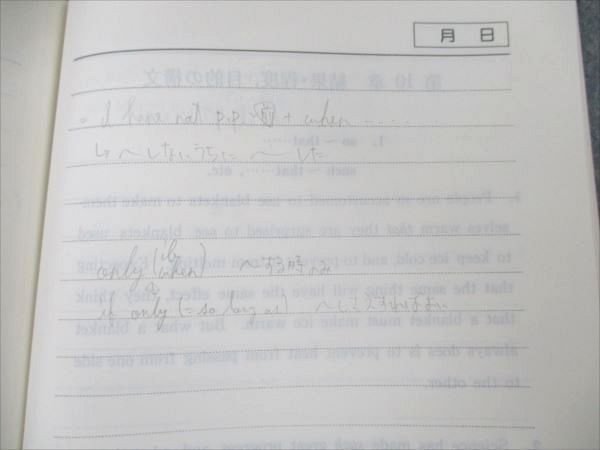 月 日
= I have not p.p. 前 + when ....
↳ 〜しないうちに 〜した
if
only (when) 〜する時のみ
if only (= so long as) 〜しさえすればよい
第 10 章 結果・程度, 目的の構文
1. so ~ that……
such ~ that……, etc.
People are so accustomed to use blankets to make them-
selves warm that they are surprised to see blankets used
to keep ice cold, and to prevent it from melting. Expecting
that the same thing will have the same effect, they think
that a blanket must make ice warm. But what a blanket
always does is to prevent heat from passing from one side
to the other.
2. Science has made such great progress